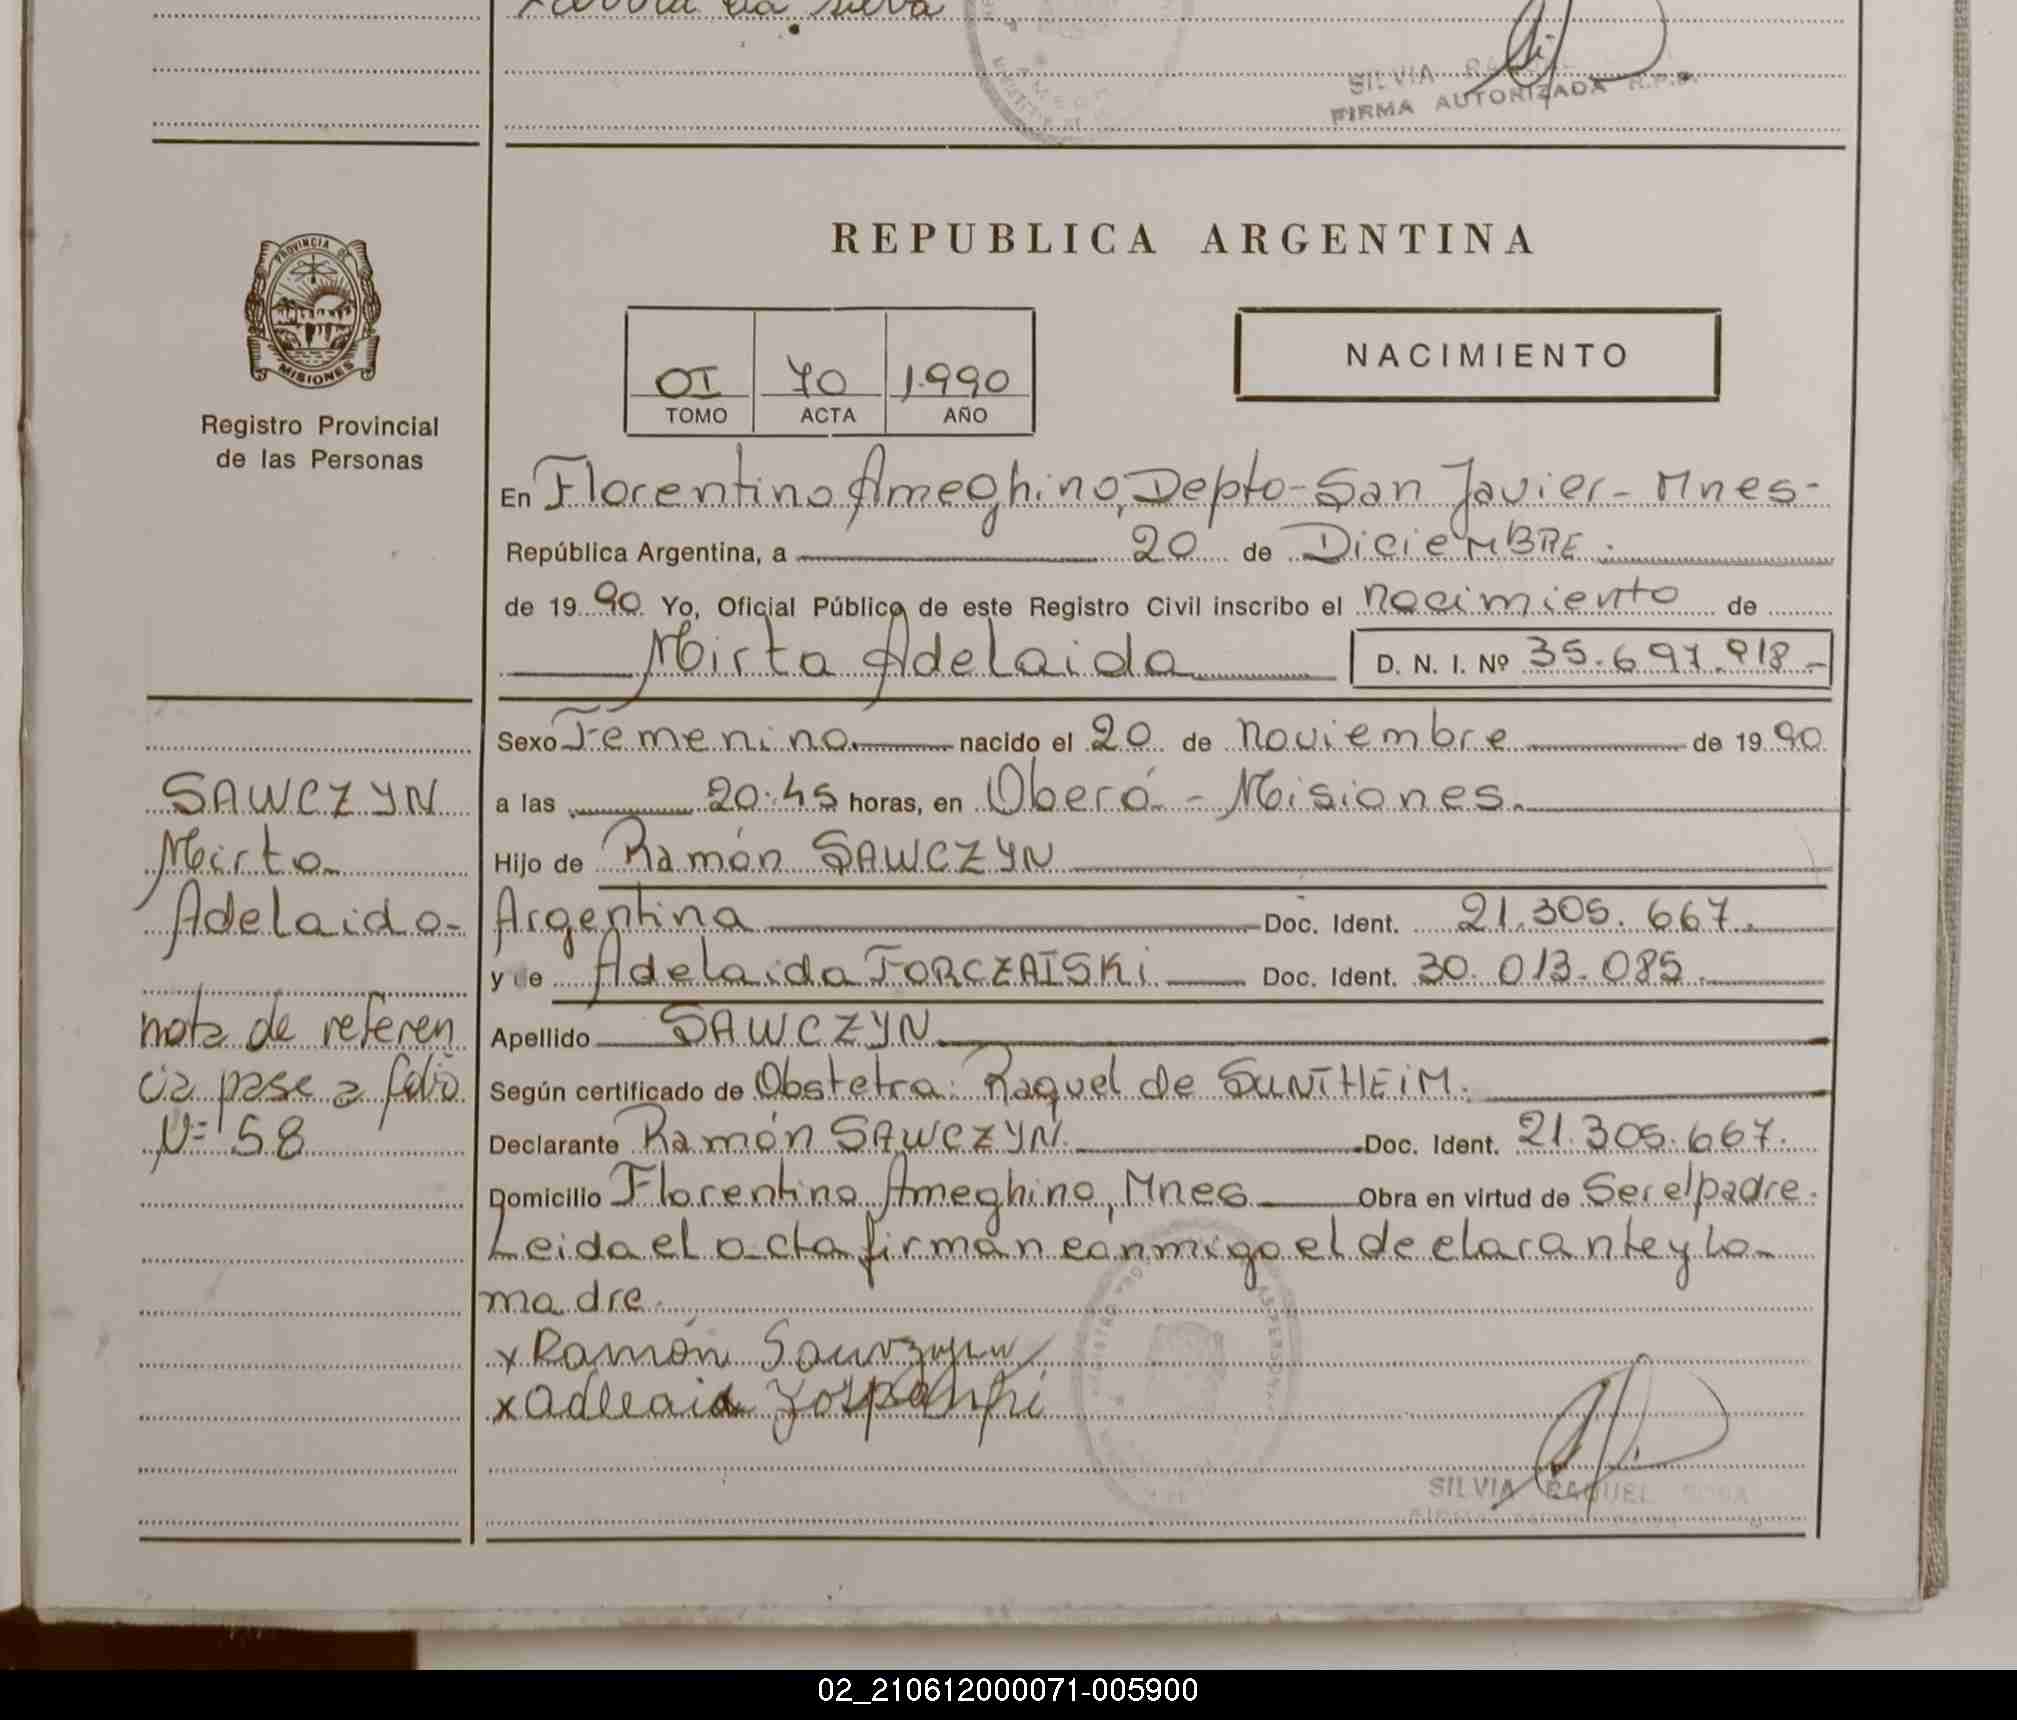 SILVIA
FIRMA AUTORIZADA R.P.P.
PROVINCIA DE
MISIONES
Registro Provincial
de las Personas
REPUBLICA ARGENTINA
OI 70 1.990
TOMO ACTA AÑO
NACIMIENTO
En Florentino Ameghino, Depto - San Javier - Mnes -
República Argentina, a 20 de DiciEMBRE.
de 19 90 Yo, Oficial Público de este Registro Civil inscribo el nacimiento de
Mirta Adelaida D. N. I. Nº 35.697.918.-
Sexo Femenino. nacido el 20 de noviembre de 19 90
a las 20:45 horas, en Oberá - Misiones.
Hijo de Ramón SAWCZYN
Argentina Doc. Ident. 21.305.667.
y de Adelaida FORCZAISKi Doc. Ident. 30.013.085.
Apellido SAWCZYN
Según certificado de Obstetra: Raquel de SUNTHEIM.
Declarante Ramón SAWCZYN. Doc. Ident. 21.305.667.
Domicilio Florentino Ameghino, Mnes Obra en virtud de Ser el padre.
Leida el acta firman conmigo el declarante y la
madre.
x Ramón
x
SILVIA RAQUEL
SAWCZYN
Mirta
Adelaida-
nota de referen
cia pase a folio
N= 58
02_210612000071-005900